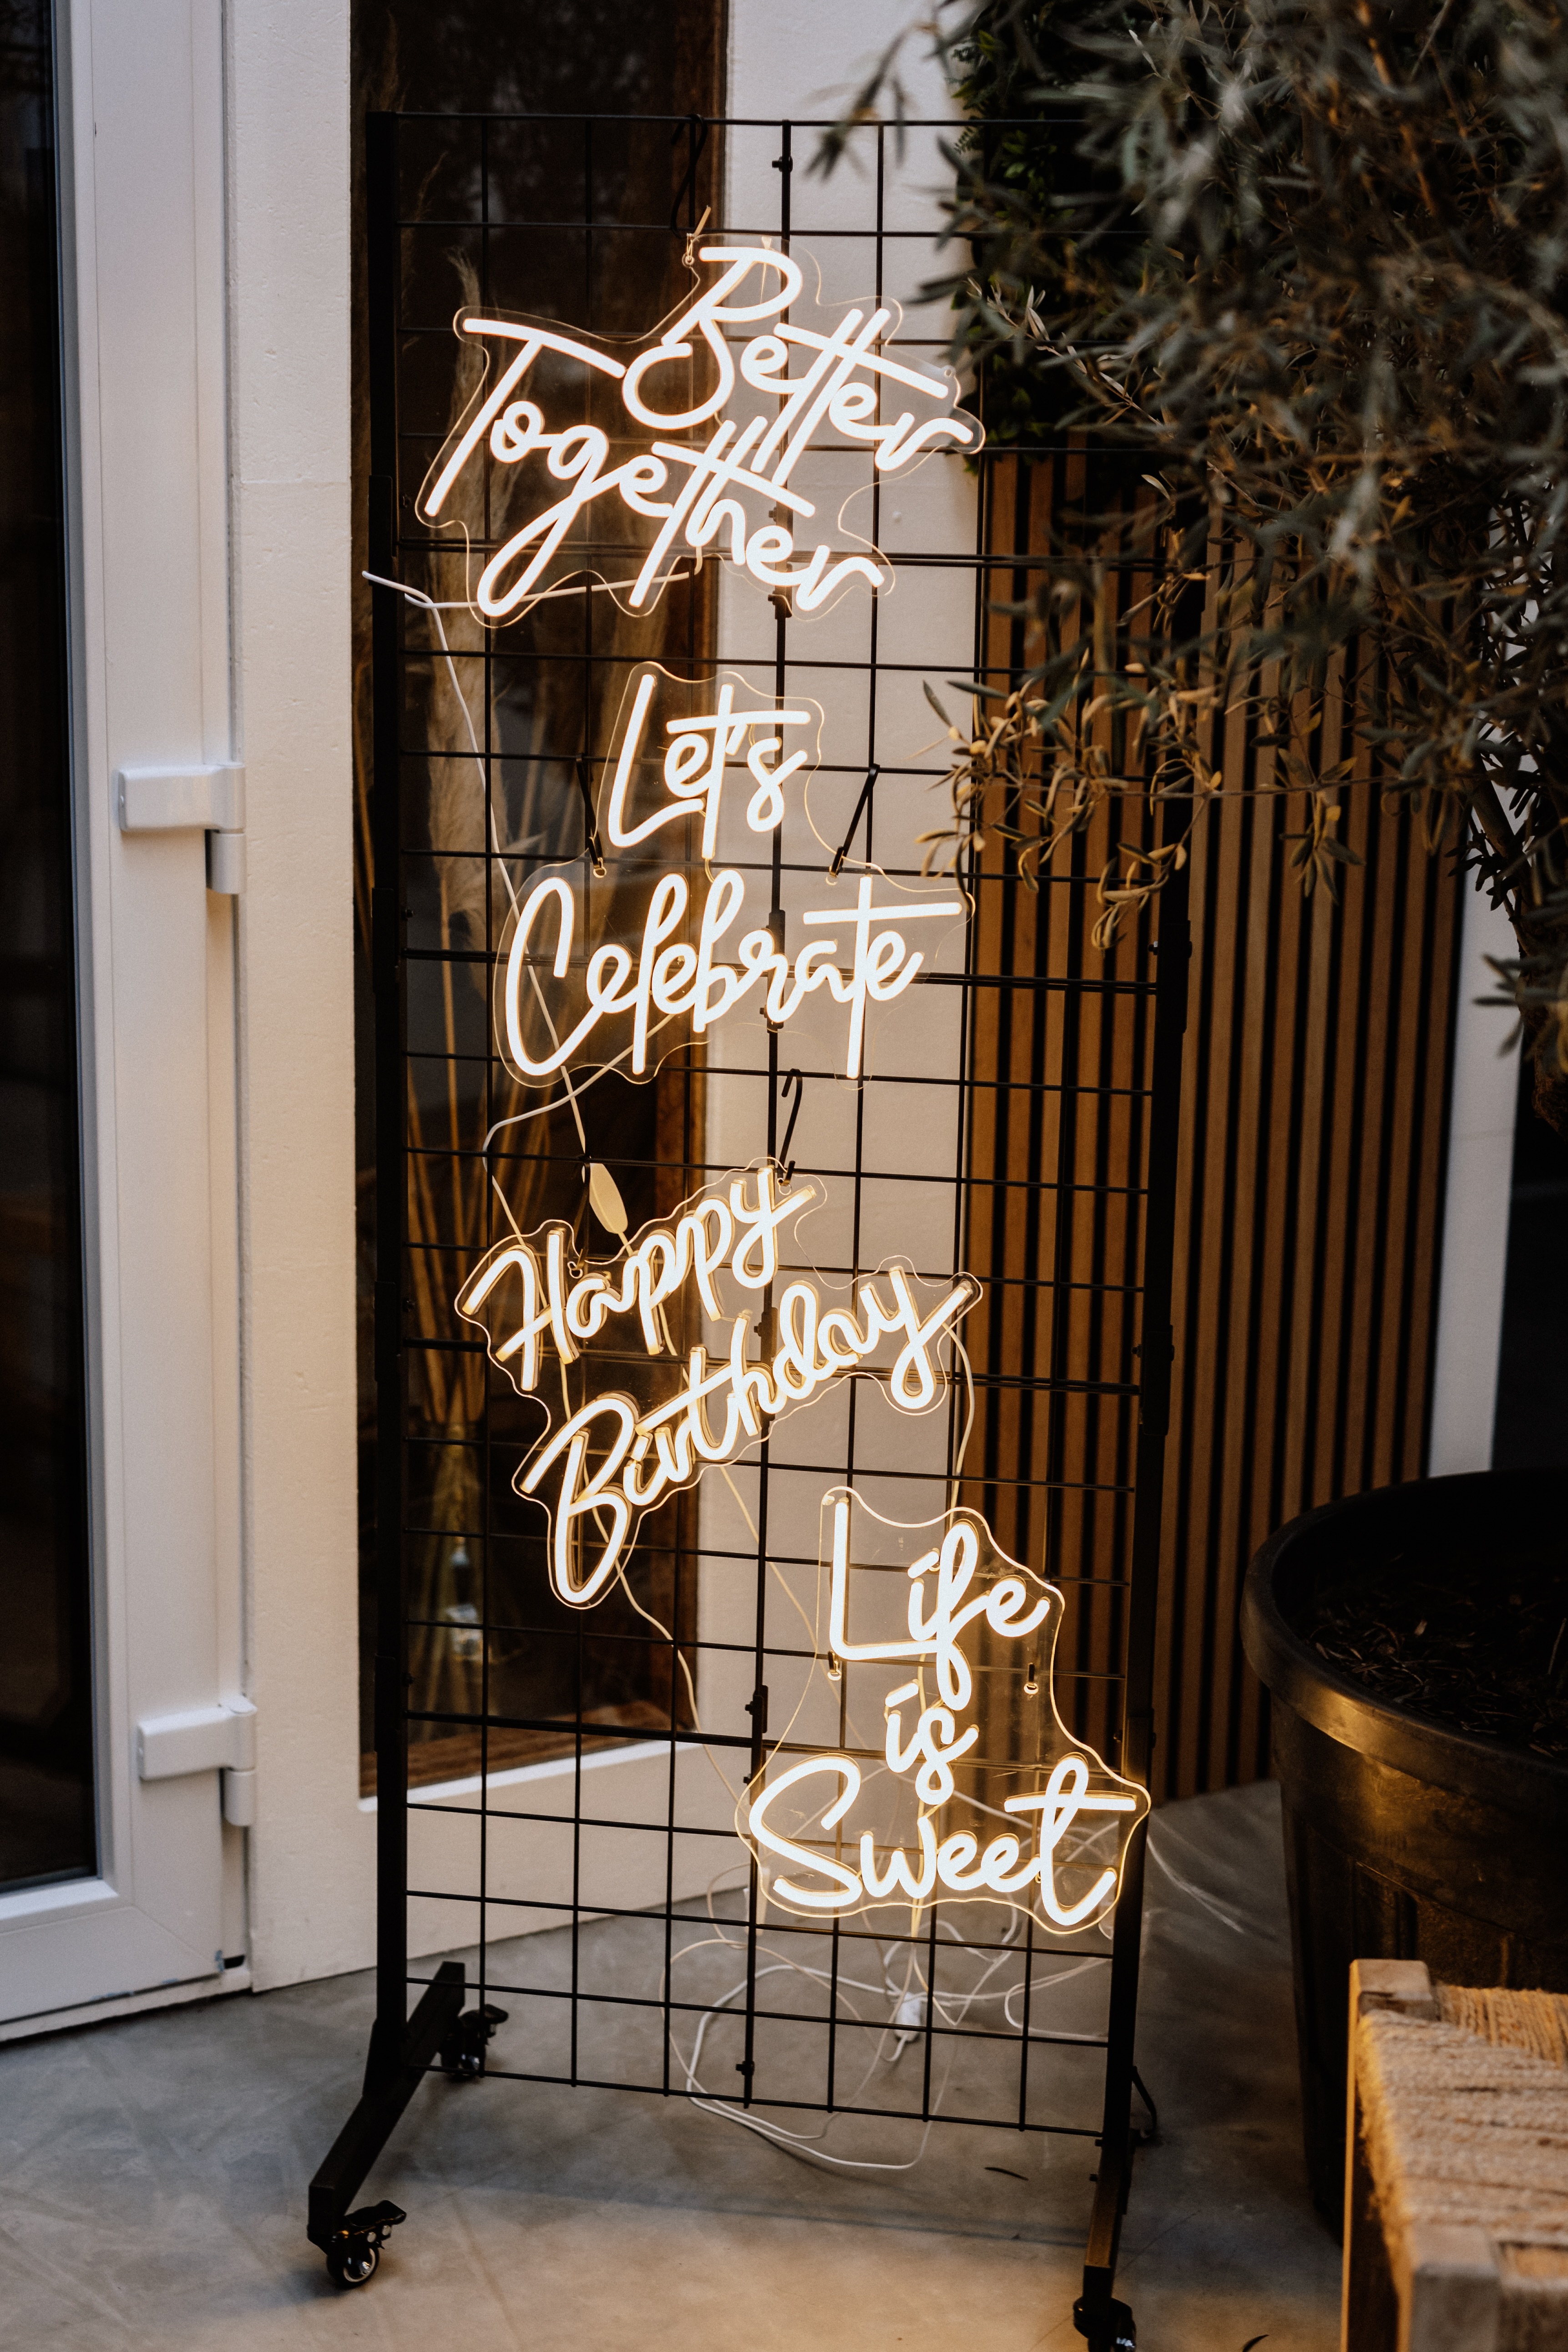 Better
Together
Let's
Celebrate
Happy
Birthday
Life
is
Sweet